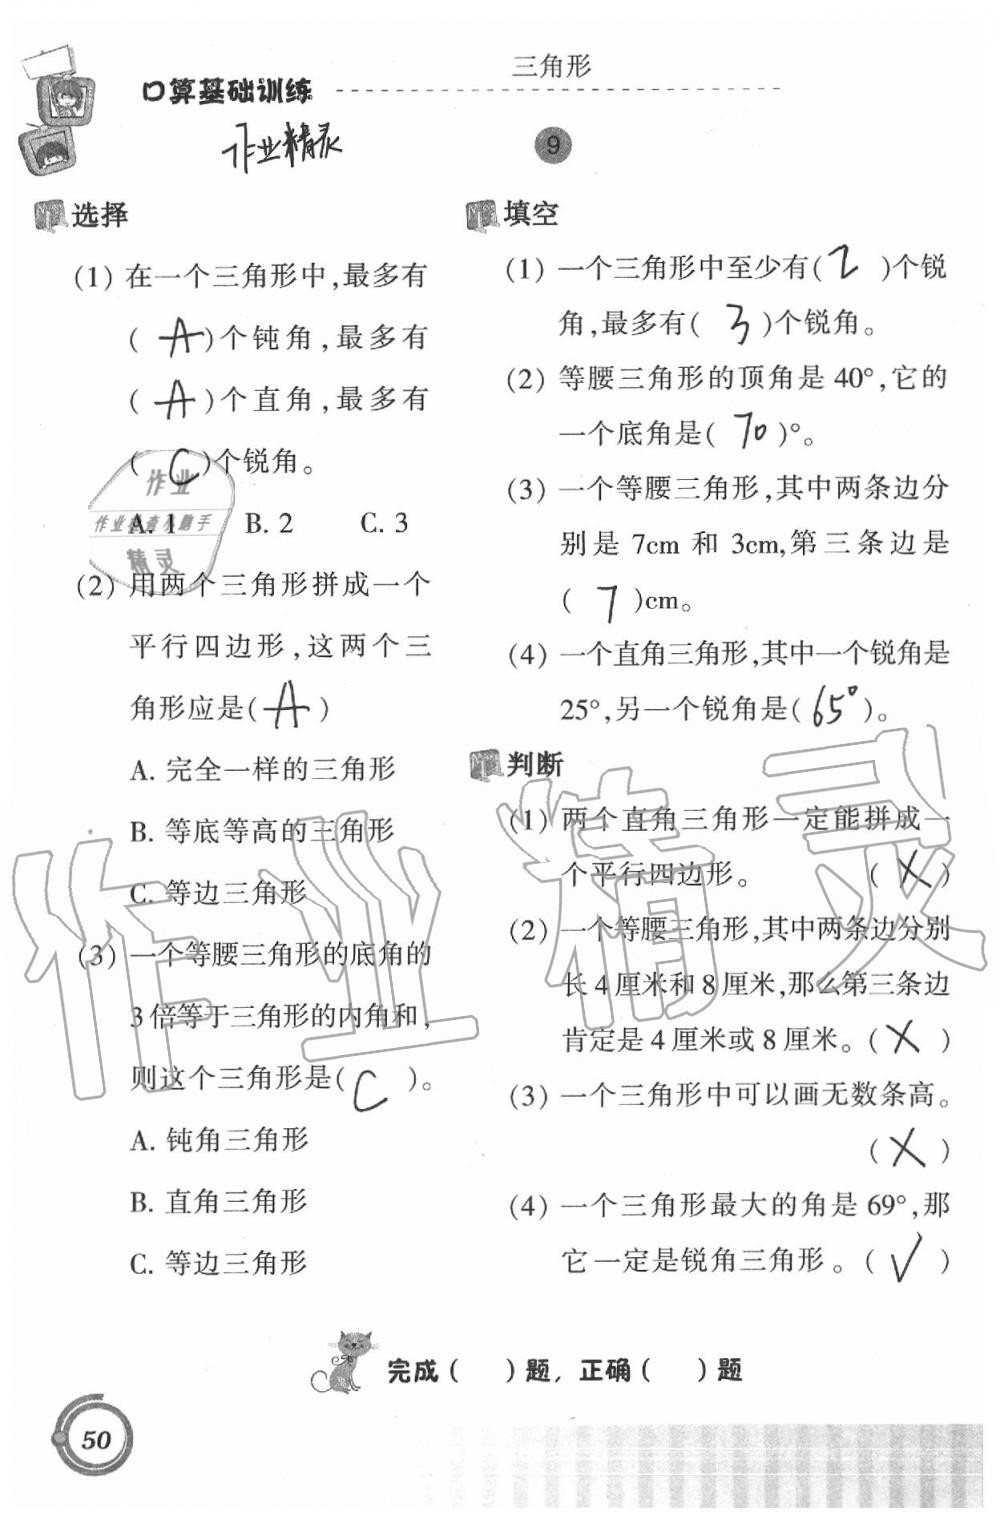 三角形
口算基础训练
作业精灵
9
选择
(1) 在一个三角形中,最多有
( A )个钝角,最多有
( A )个直角,最多有
( C )个锐角。
A. 1 B. 2 C. 3
(2) 用两个三角形拼成一个
平行四边形,这两个三
角形应是( A )
A. 完全一样的三角形
B. 等底等高的三角形
C. 等边三角形
(3) 一个等腰三角形的底角的
3倍等于三角形的内角和,
则这个三角形是( C )。
A. 钝角三角形
B. 直角三角形
C. 等边三角形
填空
(1) 一个三角形中至少有( 2 )个锐
角,最多有( 3 )个锐角。
(2) 等腰三角形的顶角是 40°,它的
一个底角是( 70 )°。
(3) 一个等腰三角形,其中两条边分
别是 7cm 和 3cm,第三条边是
( 7 )cm。
(4) 一个直角三角形,其中一个锐角是
25°,另一个锐角是( 65° )。
判断
(1) 两个直角三角形一定能拼成一
个平行四边形。 ( × )
(2) 一个等腰三角形,其中两条边分别
长 4 厘米和 8 厘米,那么第三条边
肯定是 4 厘米或 8 厘米。( × )
(3) 一个三角形中可以画无数条高。
( × )
(4) 一个三角形最大的角是 69°,那
它一定是锐角三角形。( √ )
作业
作业检查小助手
精灵
作业精灵
完成( )题,正确( )题
50